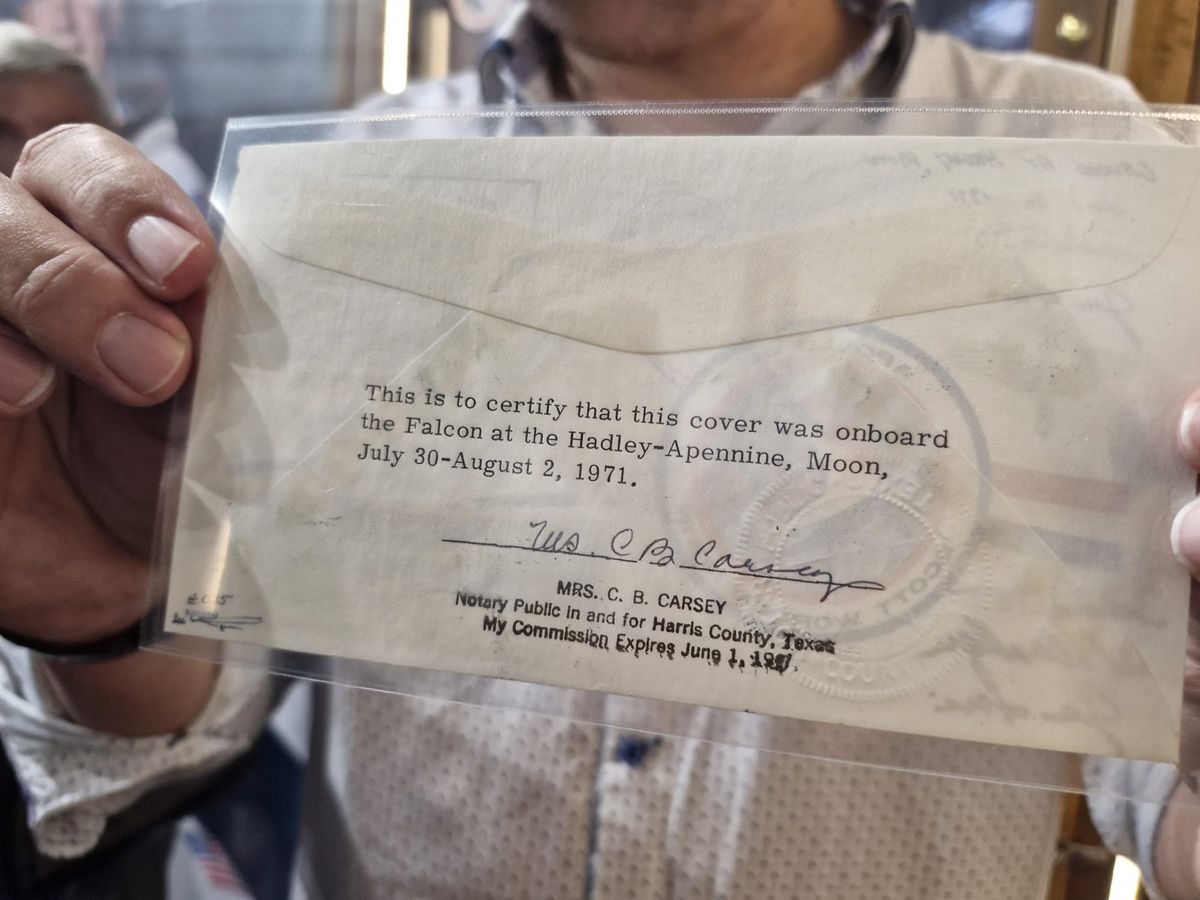 This is to certify that this cover was onboard
the Falcon at the Hadley-Apennine, Moon,
July 30-August 2, 1971.
Mrs. C B Carsey
MRS. C. B. CARSEY
Notary Public in and for Harris County, Texas
My Commission Expires June 1,